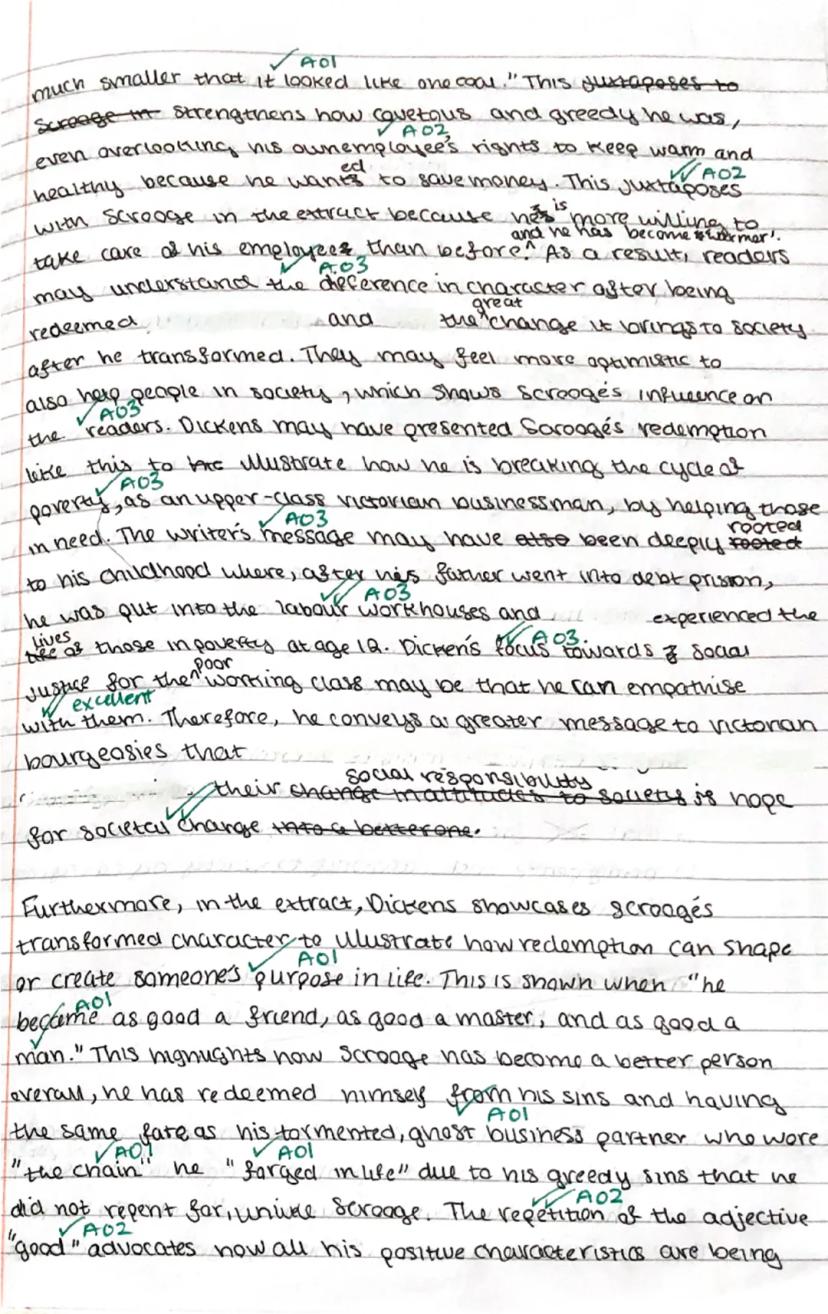 ✓ A01
much smaller that it looked like one coal." This juxtaposes to
Scrooge in strengthens how covetous and greedy he was,
✓ A02
even overlooking his own employee's rights to keep warm and
healthy because he wanted to save money. This juxtaposes
✓✓ A02
with Scrooge in the extract because he is more willing to
and he has become 'warmer'.
take care of his employees than before.^ As a result, readers
✓ A03
may understand the difference in character after being
great
redeemed and the ^change it brings to society
after he transformed. They may feel more optimistic to
also help people in society, which shows Scrooge's influence on
✓ A03
the readers. Dickens may have presented Scrooge's redemption
like this to illustrate how he is breaking the cycle of
✓ A03
poverty, as an upper-class Victorian businessman, by helping those
✓ A03
rooted
in need. The writer's message may have also been deeply rooted
to his childhood where, after his father went into debt prison,
✓✓ A03
he was put into the labour workhouses and experienced the
lives
of those in poverty at age 12. Dicken's focus towards social
✓✓ A03.
poor
justice for the ^working class may be that he can empathise
✓✓ excellent
with them. Therefore, he conveys a greater message to Victorian
bourgeosies that
social responsibility
their change in attitudes to society is hope
for societal change into a better one.
Furthermore, in the extract, Dickens showcases Scrooge's
transformed character to illustrate how redemption can shape
✓ A01
or create someone's purpose in life. This is shown when "he
✓ A01
became as good a friend, as good a master, and as good a
man." This highlights how Scrooge has become a better person
overall, he has redeemed himself from his sins and having
✓✓ A01
the same fate as his tormented, ghost business partner who wore
✓ A01 ✓ A01
"the chain" he "forged in life" due to his greedy sins that he
did not repent for, unlike Scrooge. The repetition of the adjective
✓✓ A02
✓ A02
"good" advocates how all his positive characteristics are being